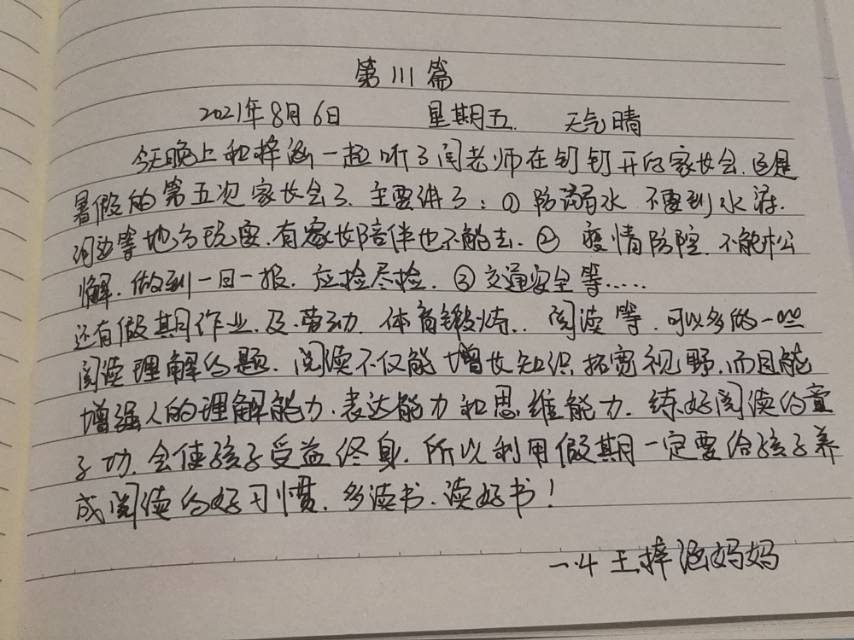 第111篇
2021年8月6日 星期五. 天气晴
今天晚上和梓涵一起听了闫老师在钉钉开的家长会.这是
暑假的第五次家长会了.主要讲了:①防溺水 不要到水库.
河边等地方玩耍.有家长陪伴也不能去.②疫情防控.不能松
懈.做到一日一报.应检尽检.③交通安全等.....
还有假期作业.及.劳动.体育锻炼..阅读等.可以多做一些
阅读理解的题.阅读不仅能增长知识.拓宽视野.而且能
增强人的理解能力.表达能力和思维能力.练好阅读的童
子功.会使孩子受益终身.所以利用假期一定要给孩子养
成阅读的好习惯.多读书.读好书!
一.4 王梓涵妈妈